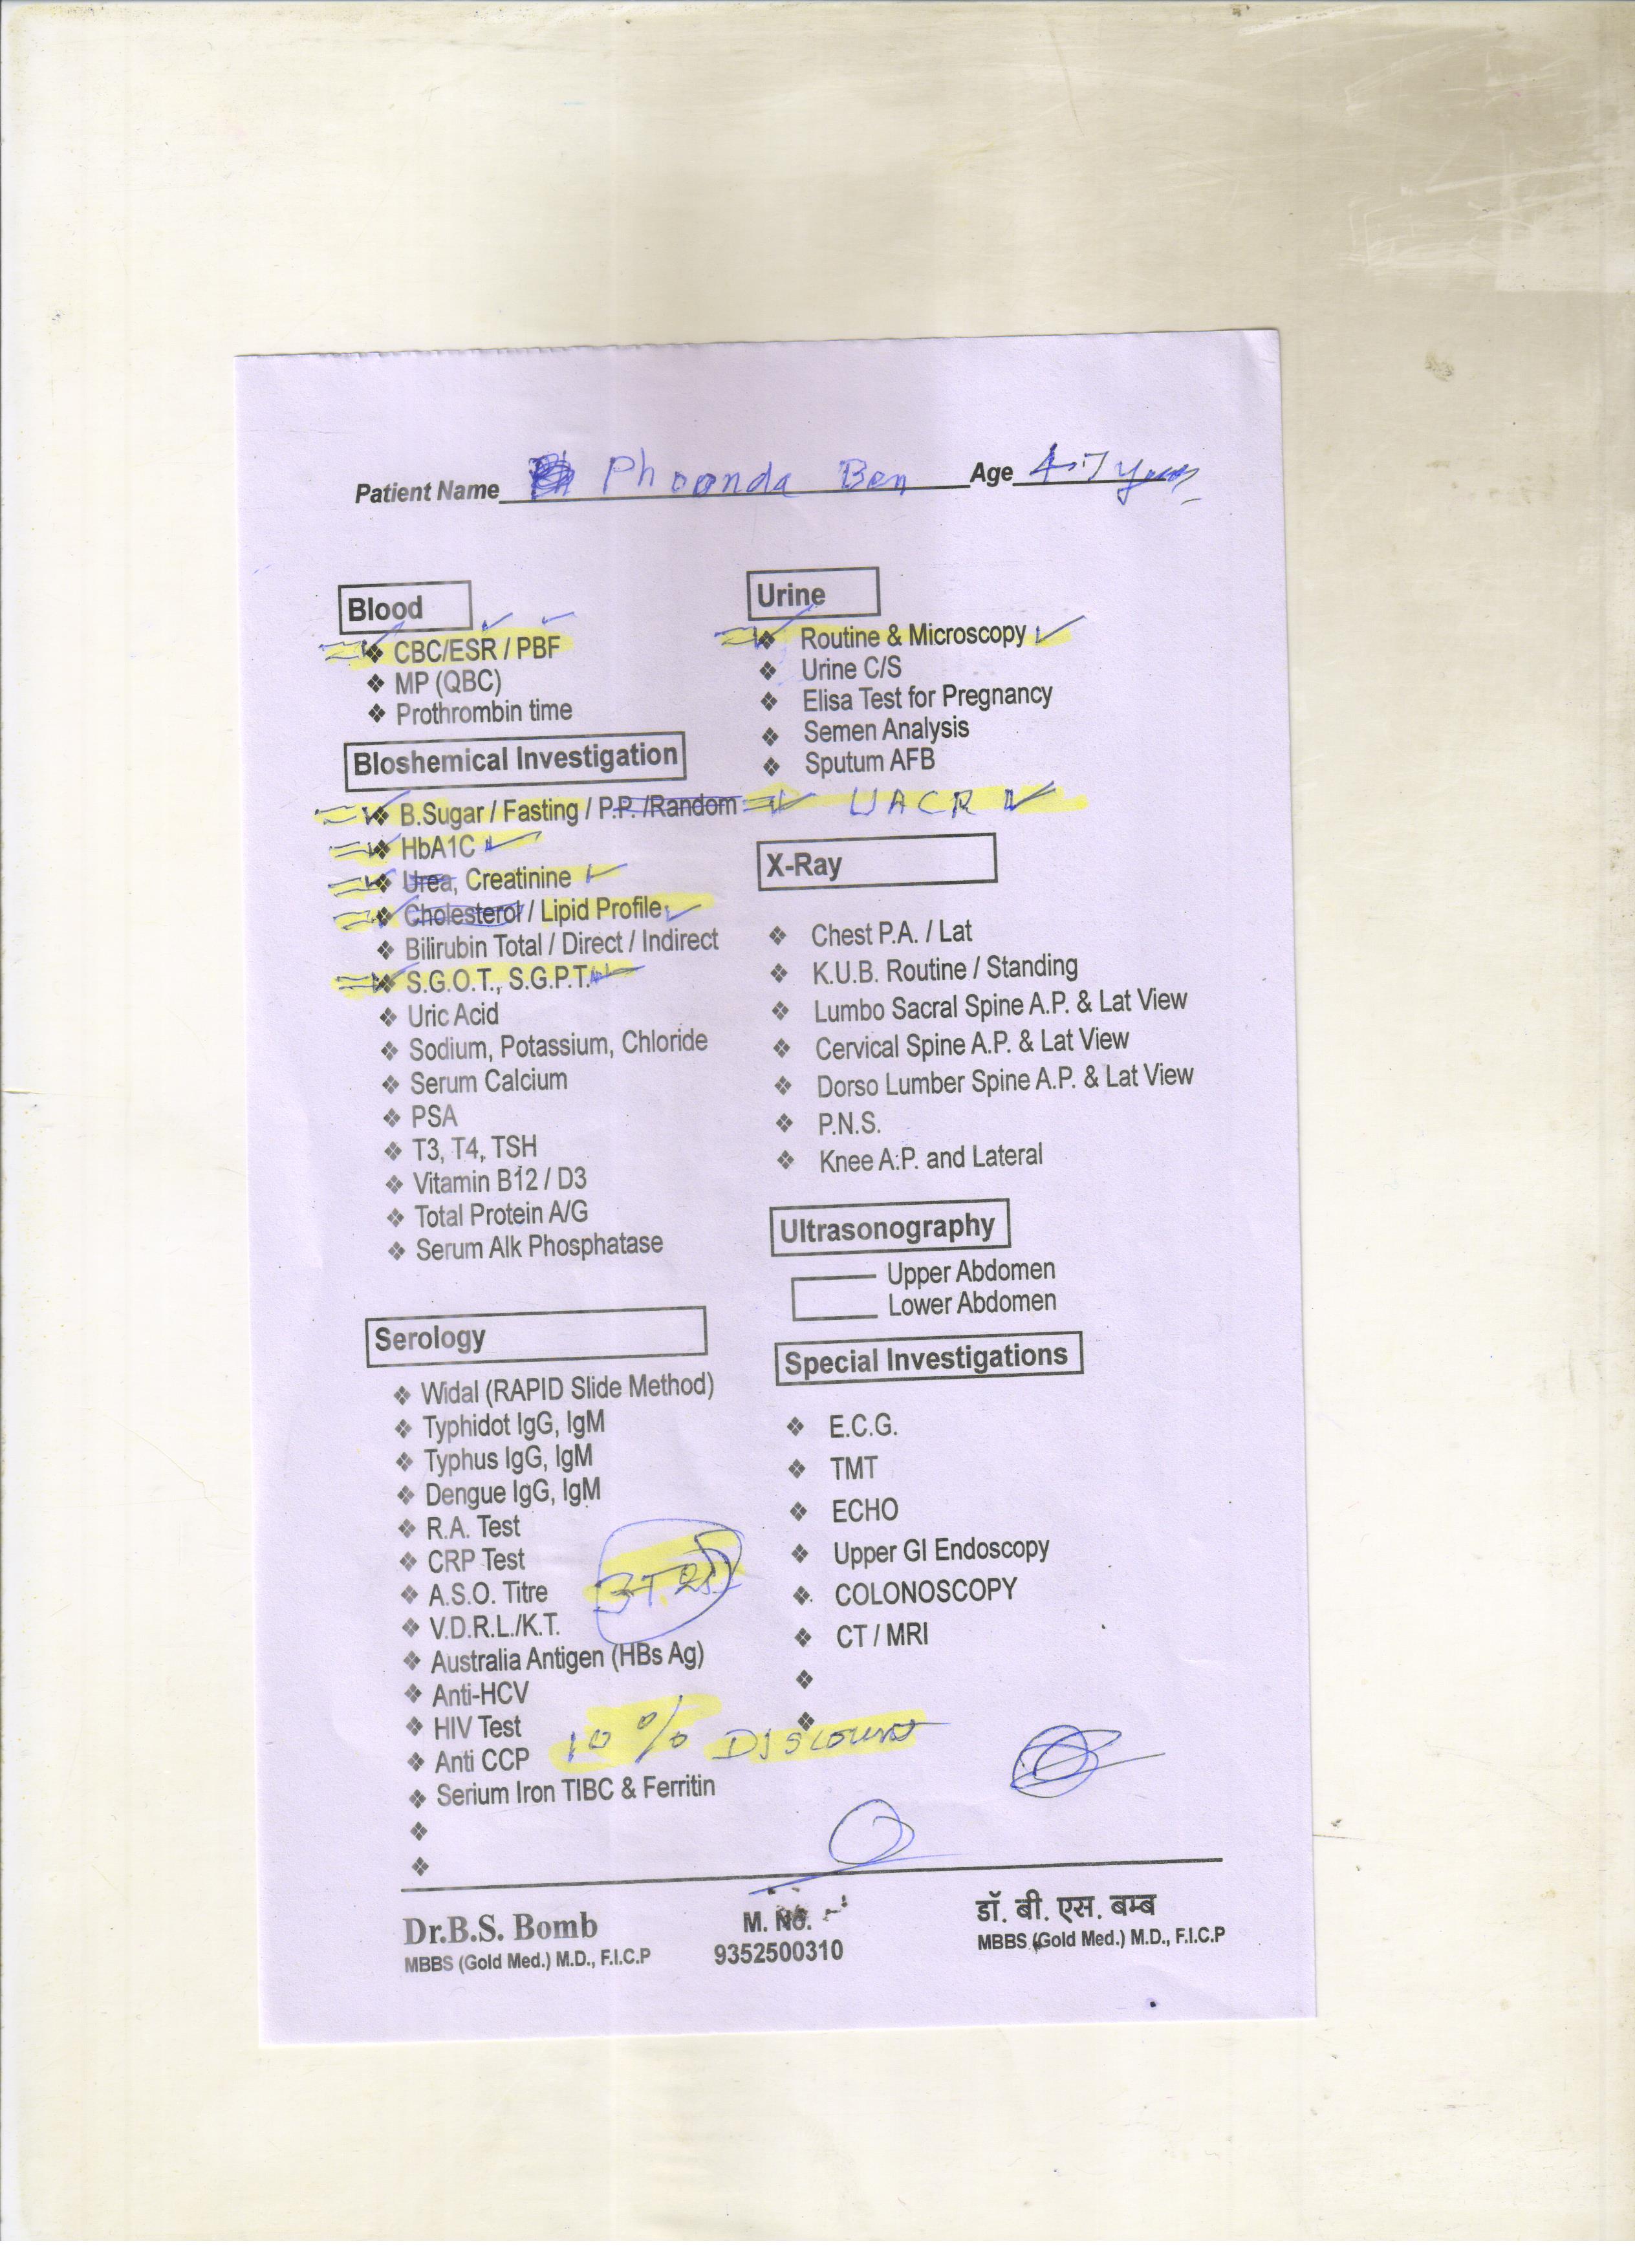 Patient Name Phoonda Ben Age 47 years
Blood
CBC/ESR / PBF
MP (QBC)
Prothrombin time
Bloshemical Investigation
B.Sugar / Fasting / P.P. /Random
HbA1C
Urea, Creatinine
Cholesterol / Lipid Profile
Bilirubin Total / Direct / Indirect
S.G.O.T., S.G.P.T.
Uric Acid
Sodium, Potassium, Chloride
Serum Calcium
PSA
T3, T4, TSH
Vitamin B12 / D3
Total Protein A/G
Serum Alk Phosphatase
Serology
Widal (RAPID Slide Method)
Typhidot IgG, IgM
Typhus IgG, IgM
Dengue IgG, IgM
R.A. Test
CRP Test
A.S.O. Titre
V.D.R.L./K.T.
Australia Antigen (HBs Ag)
Anti-HCV
HIV Test
Anti CCP
Serium Iron TIBC & Ferritin
10 % Discount
Urine
Routine & Microscopy
Urine C/S
Elisa Test for Pregnancy
Semen Analysis
Sputum AFB
UACR
X-Ray
Chest P.A. / Lat
K.U.B. Routine / Standing
Lumbo Sacral Spine A.P. & Lat View
Cervical Spine A.P. & Lat View
Dorso Lumber Spine A.P. & Lat View
P.N.S.
Knee A.P. and Lateral
Ultrasonography
Upper Abdomen
Lower Abdomen
Special Investigations
E.C.G.
TMT
ECHO
Upper GI Endoscopy
COLONOSCOPY
CT / MRI
Dr.B.S. Bomb
MBBS (Gold Med.) M.D., F.I.C.P
M. No.
9352500310
डॉ. बी. एस. बम्ब
MBBS (Gold Med.) M.D., F.I.C.P